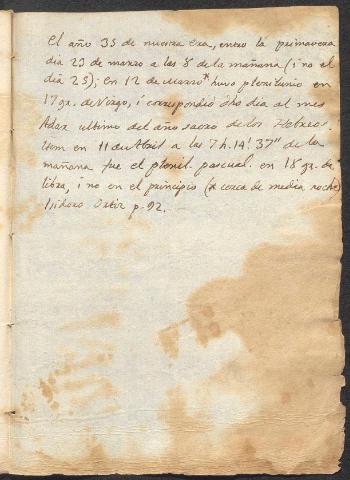 El año 33 de nuestra era, entró la primavera
dia 23 de marzo a las 8 de la mañana (i no el
dia 25); en 12 de Marzo* huvo plenilunio en
17 gr. de Virgo, i correspondió dho dia al mes
Adar ultimo del año sacro de los Hebreos.
Item en 11 de Abril a las 7 h. 14' 37" de la
mañana fue el plenil. pascual. en 18 gr. de
libra, i no en el principio (* cerca de media noche)
Isidoro Ortiz p. 92.